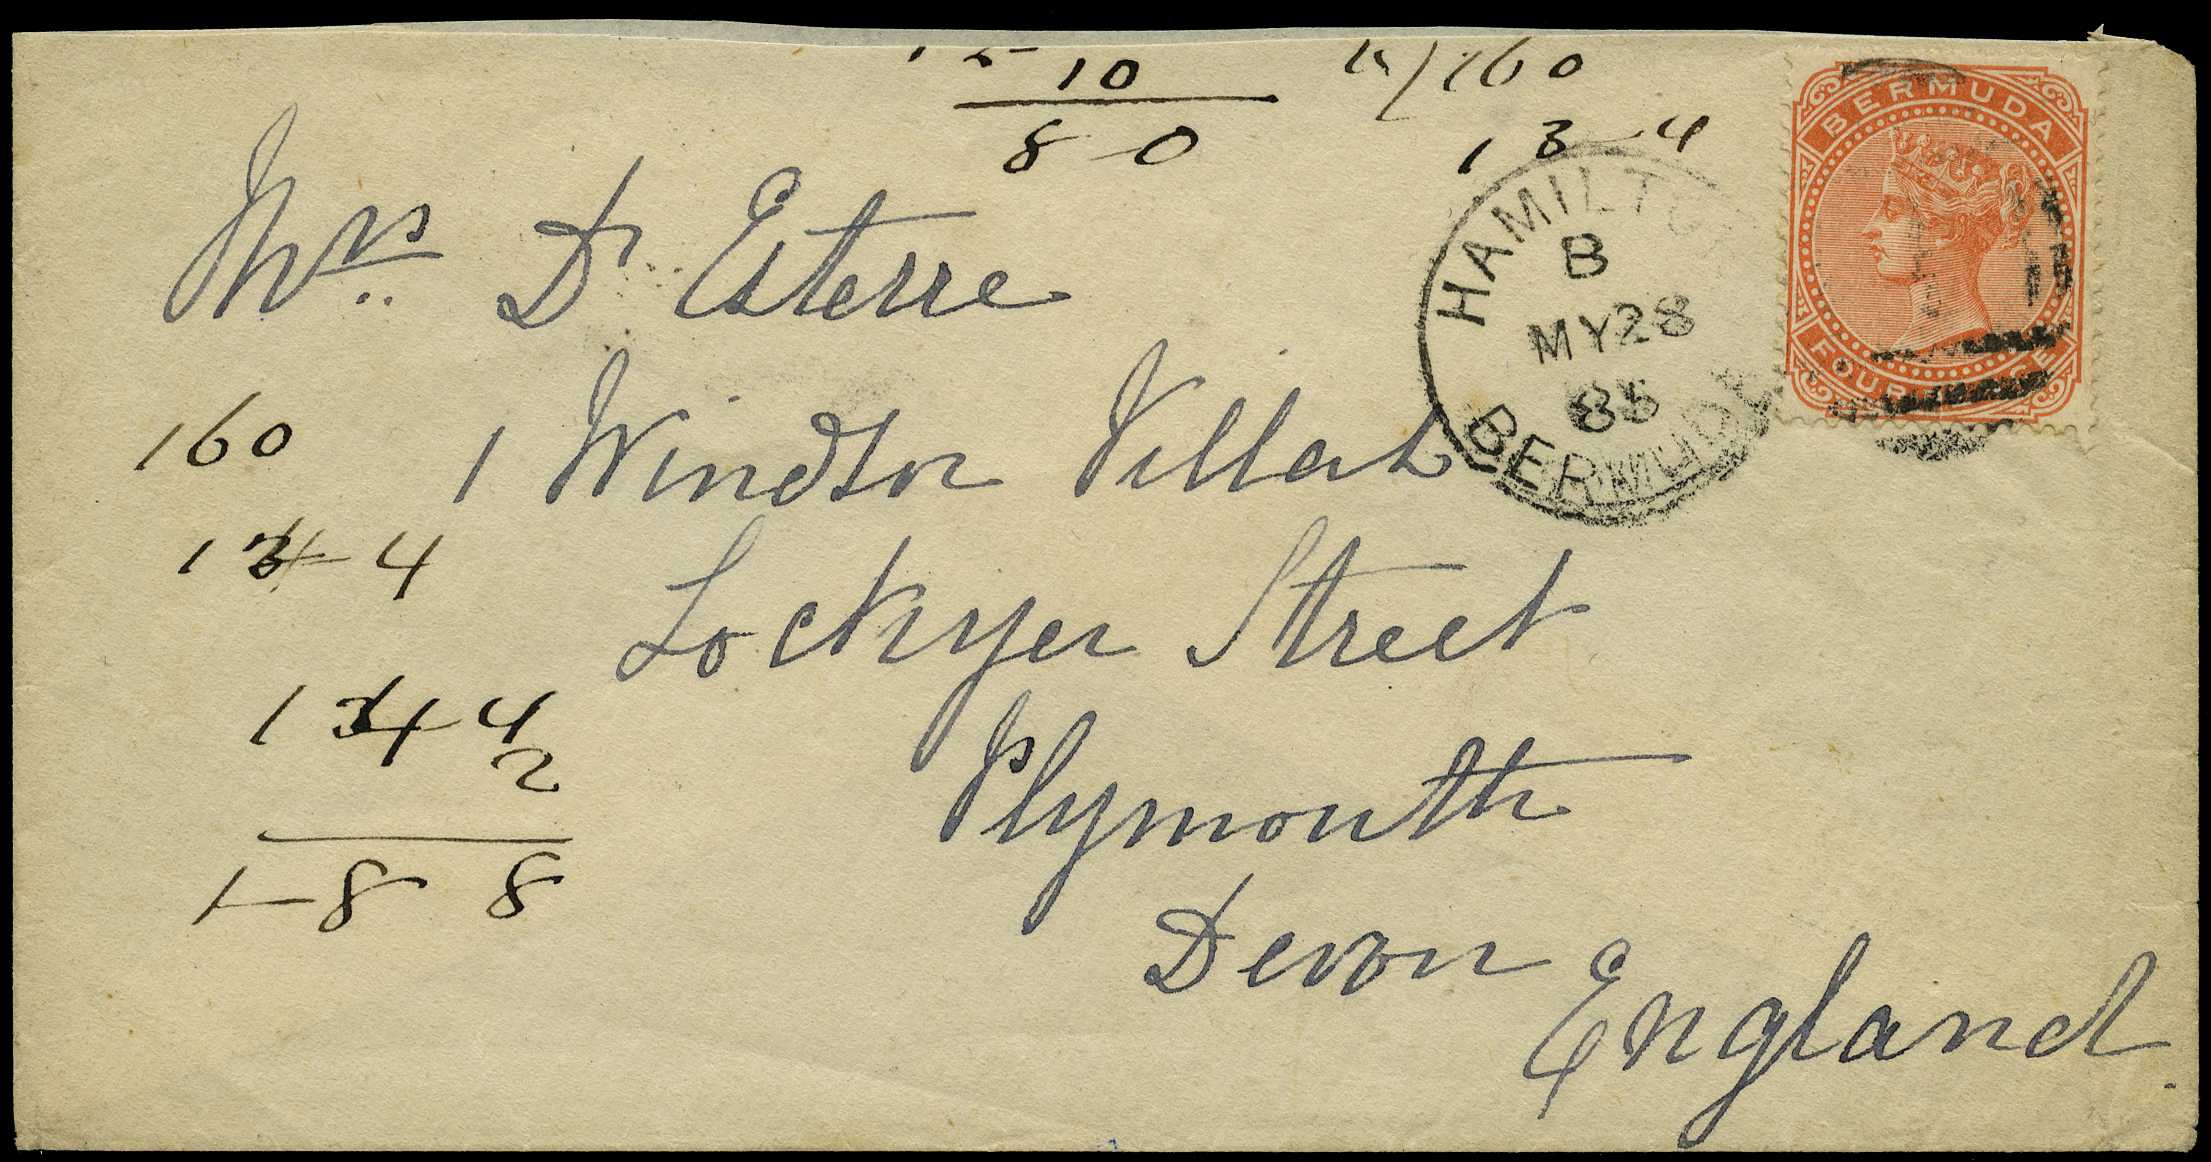 10
160
8 0
13-4
BERMUDA
FOUR PENCE
HAMILTON
B
MY 28
85
BERMUDA
Mrs. D'Esterre
160
1 Windsor Villas
4
Lockyer Street
4
2
Plymouth
1-8 8
Devon
England